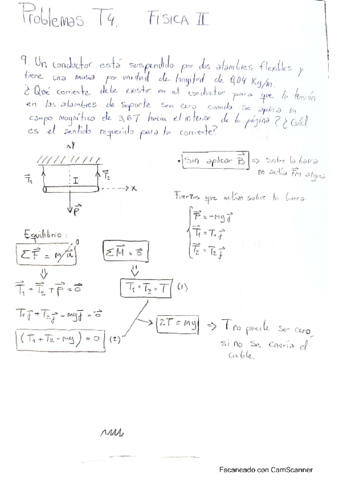 Problemas T4. FISICA II
9. Un conductor está suspendido por dos alambres flexibles y
tiene una masa por unidad de longitud de 0,04 Kg/m.
¿Qué corriente debe existir en el conductor para que la tensión
en los alambres de soporte sea cero cuando se aplica un
campo magnético de 3,6T hacia el interior de la página? ¿Cuál
es el sentido requerido para la corriente?
y
T⃗₁ I T⃗₂
x
P⃗
• Sin aplicar B⃗ ⇒ sobre la barra
no actúa Fm alguna
Fuerzas que actúan sobre la barra:
P⃗ = -mgj⃗
T⃗₁ = T₁j⃗
T⃗₂ = T₂j⃗
Equilibrio:
ΣF⃗ = ma⃗ 0 ΣM⃗ = 0⃗
T⃗₁ + T⃗₂ + P⃗ = 0⃗ T₁ = T₂ = T (1)
T₁j⃗ + T₂j⃗ - mgj⃗ = 0⃗
(T₁ + T₂ - mg) = 0 (2) 2T = mg ⇒ T no puede ser cero,
si no se caería el
cable.
Escaneado con CamScanner